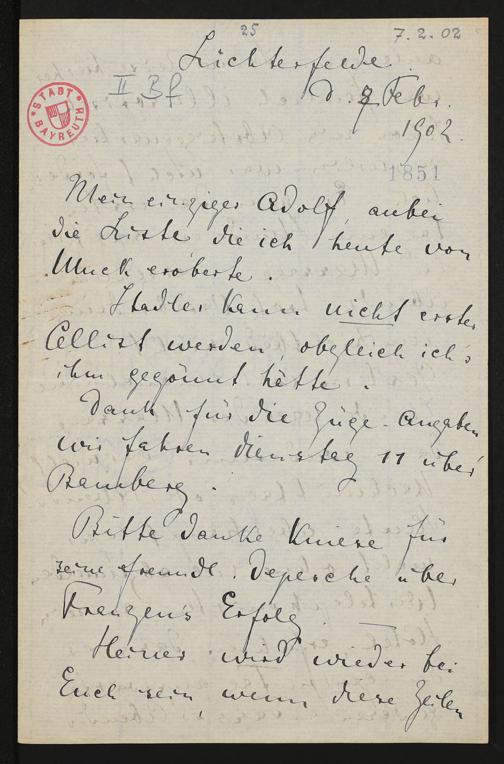 25
7. 2. 02
Lichterfelde
II Bf
d. 7 Febr.
1902.
STADT BAYREUTH
1851
Mein einziger Adolf, anbei
die Liste die ich heute von
Muck eroberte.
Stadler kann nicht erster
Cellist werden, obgleich ich's
ihm gegönnt hätte.
Dank für die Züge-Angaben
wir fahren Dienstag 11 über
Bamberg.
Bitte danke Kniese für
seine freundl. Depesche über
Franzens Erfolg. —
Heiner wird wieder bei
Euch sein, wenn diese Zeilen